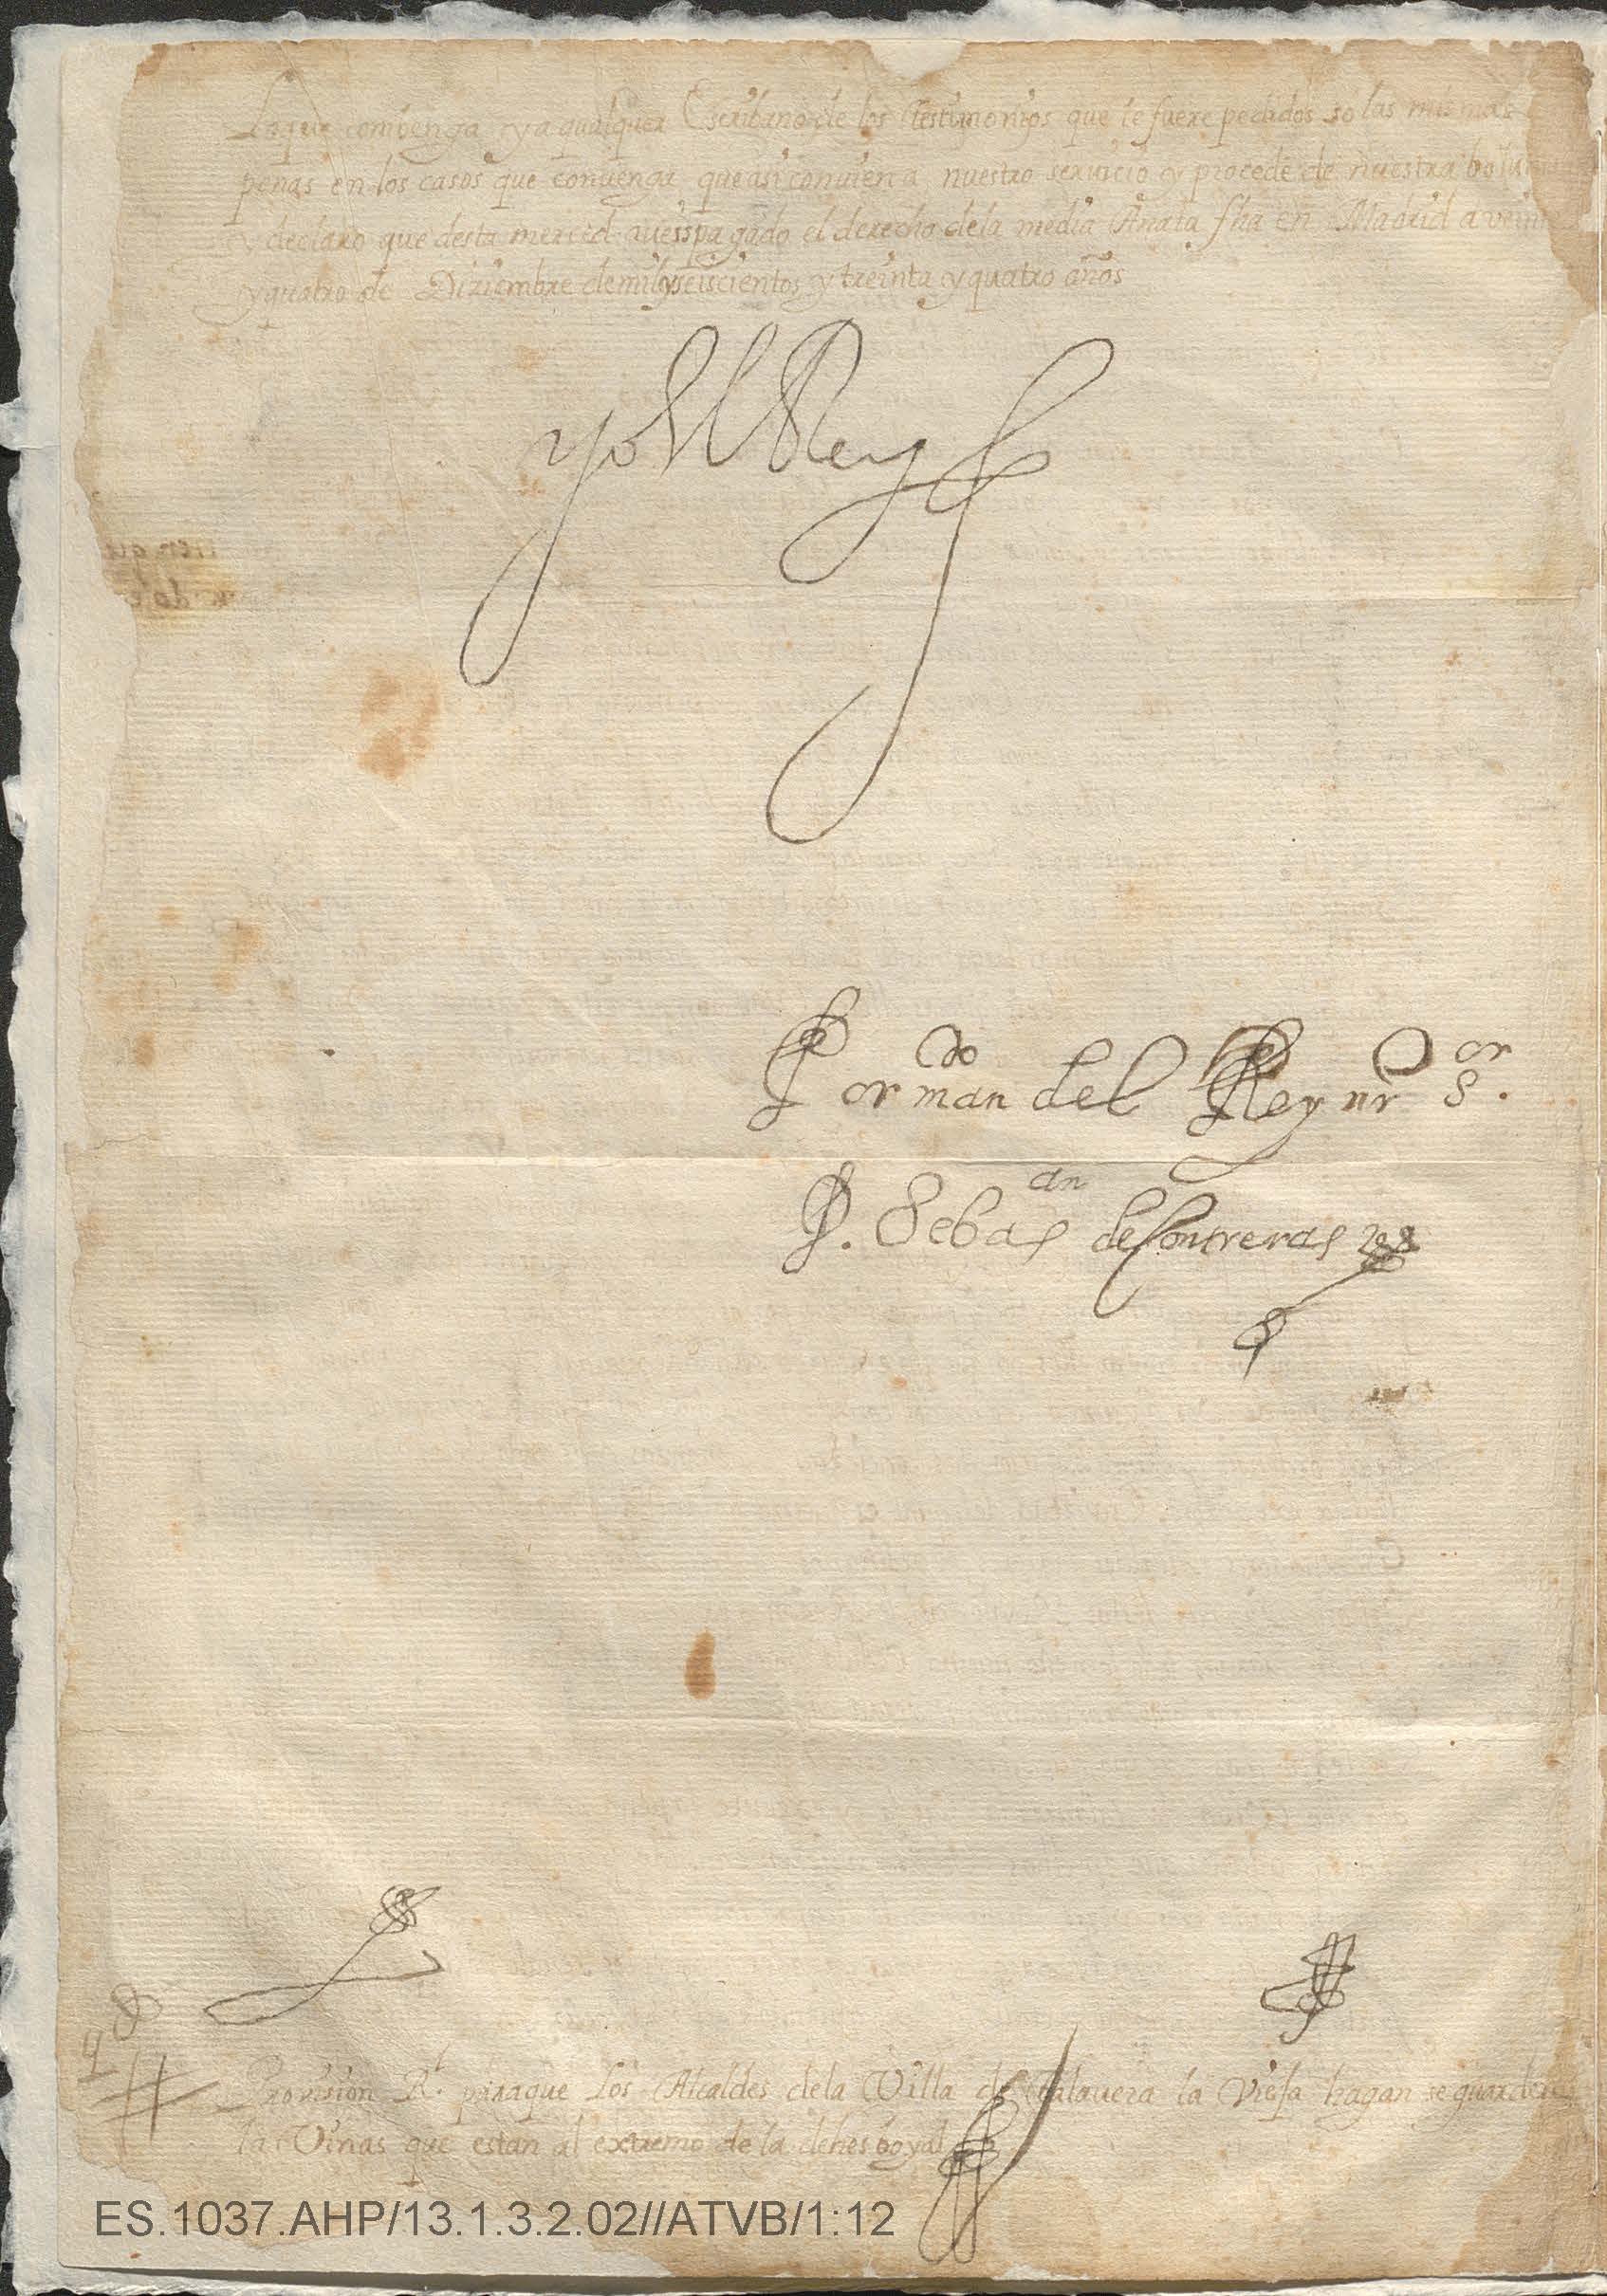 Loque combenga y a qualquer Escribano de los Testimonios que le fuere pedidos so las mismas
penas en los casos que convenga que asi conuien a nuestro seruicio y procede de nuestra bolun
y declaro que desta merced aueis pagado el derecho dela media Anata fha en Madrid a veinte
y quatro de Diziembre de mil y seiscientos y treinta y quatro años
yo El Rey
Por mando del Rey nro Sor.
D. Sebasan de Contreras
Provision Rl. para que los Alcaldes dela Villa de Talauera la Vieja hagan se guarden
las Viñas que estan al extremo de la dehes boyal
ES.1037.AHP/13.1.3.2.02//ATVB/1:12